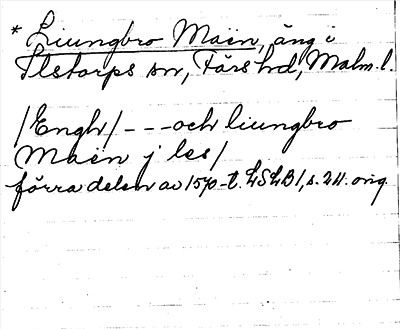 * Liungbro Maën, äng i
Ilstorps sn, Färs hd, Malm. l.
/Enghr/ - - - och liungbro
Maën j les/
förra delen av 1570-t. LSLB 1, s. 211. orig.